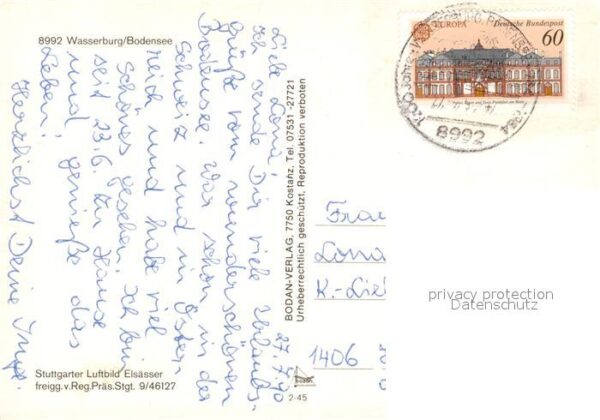 8992 Wasserburg/Bodensee
27.7.90
Liebe Loni,
ich sende Dir viele Urlaubs-
grüße vom wunderschönen
Bodensee. War schon in der
Schweiz und in Öster-
reich und habe viel
schönes gesehen. Ich bin
seit 23.6. zu Hause
und genieße das
Leben!
Herzlichst Deine Inge.
Stuttgarter Luftbild Elsässer
freigg.v.Reg.Präs.Stgt. 9/46127
BODAN-VERLAG, 7750 Kostanz, Tel. 07531-27721
Urheberrechtlich geschützt, Reproduktion verboten
2-45
EUROPA
Deutsche Bundespost
60
1200 Jahre
1984
8992
Frau
K.-Lie
1406
privacy protection
Datenschutz